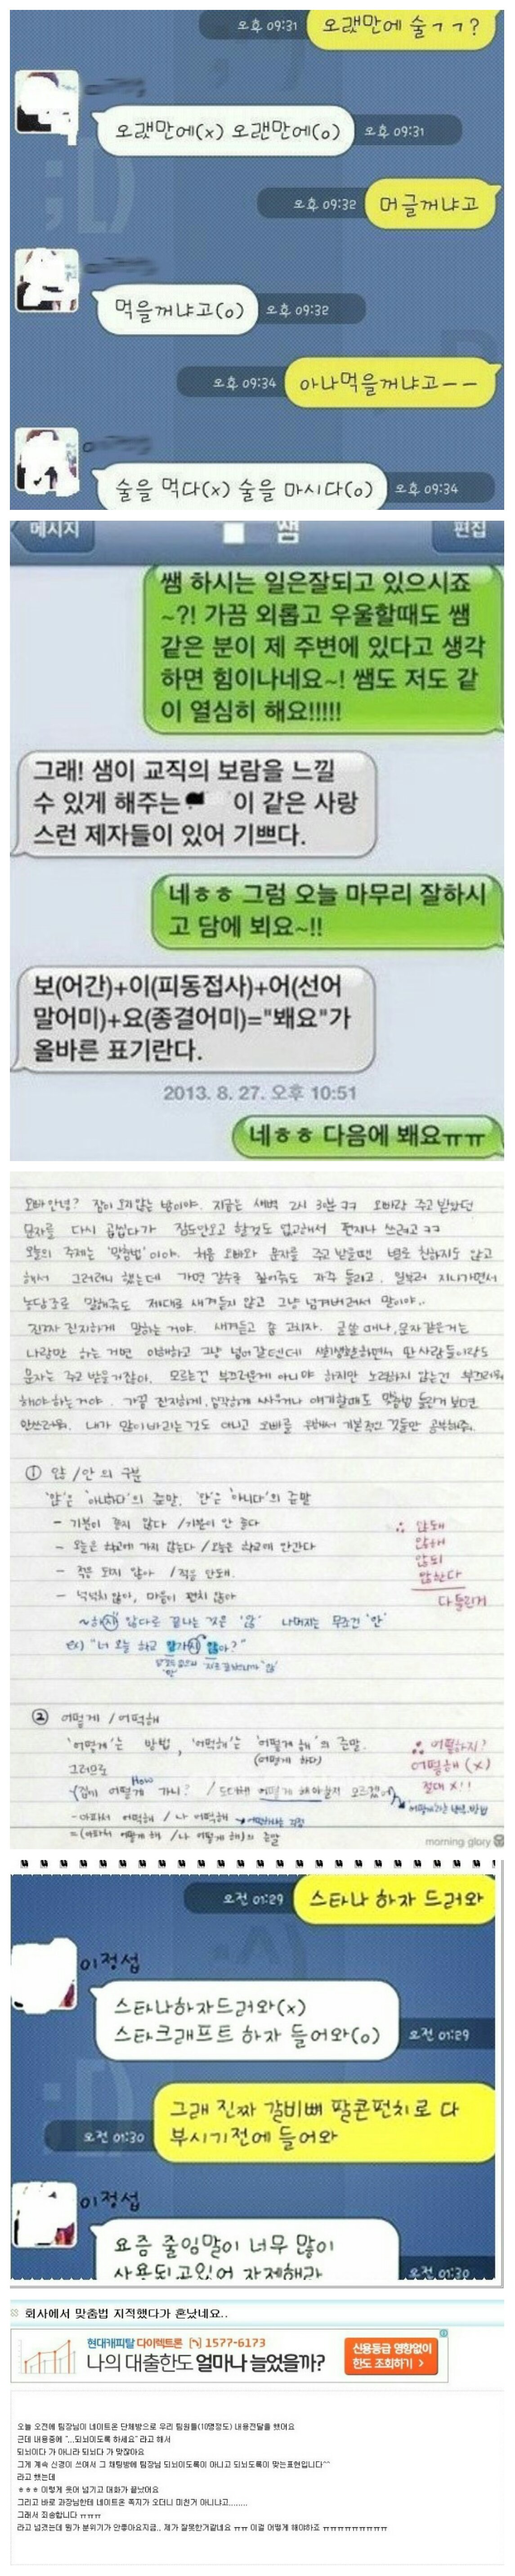 오후 09:31 오랬만에 술ㄱㄱ?
오랬만에(x) 오랜만에(o) 오후 09:31
오후 09:32 머글꺼냐고
먹을꺼냐고(o) 오후 09:32
오후 09:34 아나먹을꺼냐고ㅡㅡ
술을 먹다(x) 술을 마시다(o) 오후 09:34
메시지 쌤 편집
쌤 하시는 일은잘되고 있으시죠
~?! 가끔 외롭고 우울할때도 쌤
같은 분이 제 주변에 있다고 생각
하면 힘이나네요~! 쌤도 저도 같
이 열심히 해요!!!!!
그래! 샘이 교직의 보람을 느낄
수 있게 해주는 이 같은 사랑
스런 제자들이 있어 기쁘다.
네ㅎㅎ 그럼 오늘 마무리 잘하시
고 담에 뵈요~!!
보(어간)+이(피동접사)+어(선어
말어미)+요(종결어미)="봬요"가
올바른 표기란다.
2013. 8. 27. 오후 10:51
네ㅎㅎ 다음에 봬요ㅠㅠ
오빠안녕? 잠이 오지않는 밤이야. 지금은 새벽 2시 30분 ㅋㅋ 오빠랑 주고 받았던
문자를 다시 곱씹다가 잠도안오고 할것도 없고해서 편지나 쓰려고 ㅋㅋ
오늘의 주제는 '맞춤법'이야. 처음 오빠와 문자를 주고 받을땐 별로 친하지도 않고
해서 그러려니 했는데 가면 갈수록 짚어줘도 자주 틀리고, 일부러 지나가면서
농담조로 말해줘도 제대로 새겨듣지 않고 그냥 넘겨버려서 말이야..
진짜 진지하게 말하는 거야. 새겨듣고 좀 고치자. 글쓸때나, 문자같은거는
나랑만 하는 거면 이해하고 그냥 넘어갈텐데 사회생활하면서 딴사람들이랑도
문자는 주고 받을거잖아. 모르는건 부끄러운게 아니야 하지만 노력하지 않는건 부끄러워
해야하는거야. 가끔 진지하게, 심각하게 싸우거나 얘기할때도 맞춤법 틀린거 보면
안쓰러워. 내가 많이 바라는것도 아니고 오빠를 위해서 기본적인 것들만 공부해줘.
① 않/안 의 구분
'않'은 '아니하다'의 준말, '안'은 '아니다'의 준말
- 기분이 좋지 않다 / 기분이 안 좋다
- 오늘은 학교에 가지 않는다 / 오늘은 학교에 안간다
- 적은 되지 않아 / 적은 안돼.
- 넉넉치 않아, 마음이 편치 않아
∴ 않돼
않해
않되
않한다
다 틀린거
~하지 않다로 끝나는 것은 '않' 나머지는 무조건 '안'
ex) "너 오늘 학교 안가지 않아?"
② 어떻게 / 어떡해
'어떻게'는 방법, '어떡해'는 '어떻게 해'의 준말.
(어떻게 하다)
그러므로
How
집에 어떻게 가니? / 도대체 어떻게 해야할지 모르겠어
- 아파서 어떡해 / 나 어떡해
= (아파서 어떻게 해 / 나 어떻게 해)의 준말
∴ 어떻하지?
어떻해 (x)
절대 x!!
morning glory
오전 01:29 스타나 하자 드러와
이정섭
스타나하자드러와(x)
스타크래프트 하자 들어와(o) 오전 01:29
그래 진짜 갈비뼈 팔콘펀치로 다
오전 01:30 부시기전에 들어와
이정섭
요즘 줄임말이 너무 많이
사용되고있어 자제해라 오전 01:30
회사에서 맞춤법 지적했다가 혼났네요..
현대캐피탈 다이렉트론 1577-6173
나의 대출한도 얼마나 늘었을까?
신용등급 영향없이
한도 조회하기 >
오늘 오전에 팀장님이 네이트온 단체방으로 우리 팀원들(10명정도) 내용전달을 했어요
근데 내용중에 "...되뇌이도록 하세요" 라고 해서
되뇌이다 가 아니라 되뇌다 가 맞잖아요
그게 계속 신경이 쓰여서 그 채팅방에 팀장님 되뇌이도록이 아니고 되뇌도록이 맞는표현입니다^^
라고 했는데
ㅎㅎㅎ 이렇게 웃어 넘기고 대화가 끝났어요
그리고 바로 과장님한테 네이트온 쪽지가 오더니 미친거 아니냐고........
그래서 죄송합니다 ㅠㅠㅠ
라고 넘겼는데 뭔가 분위기가 안좋아요지금.. 제가 잘못한거같네요 ㅠㅠ 이걸 어떻게 해야하죠 ㅠㅠㅠㅠㅠㅠㅠㅠㅠ